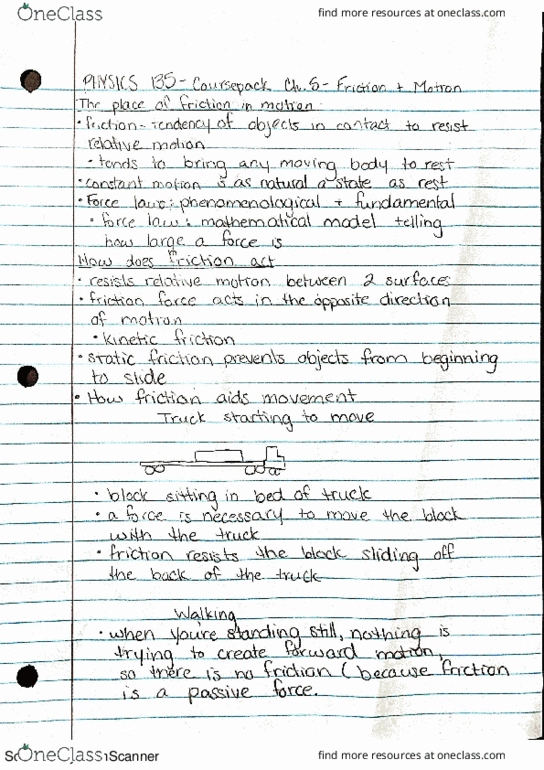 OneClass
find more resources at oneclass.com
PHYSICS 135 - Coursepack Ch. 5 - Friction + Motion
The place of friction in motion
• friction - tendency of objects in contact to resist
relative motion
• tends to bring any moving body to rest
• constant motion is as natural a state as rest
• Force laws: phenomenological + fundamental
• force law: mathematical model telling
how large a force is
How does friction act
• resists relative motion between 2 surfaces
• friction force acts in the opposite direction
of motion
• kinetic friction
• static friction prevents objects from beginning
to slide
• How friction aids movement
Truck starting to move
• block sitting in bed of truck
• a force is necessary to move the block
with the truck
• friction resists the block sliding off
the back of the truck
Walking
• when you're standing still, nothing is
trying to create forward motion,
so there is no friction (because friction
is a passive force.
OneClass Scanner
find more resources at oneclass.com